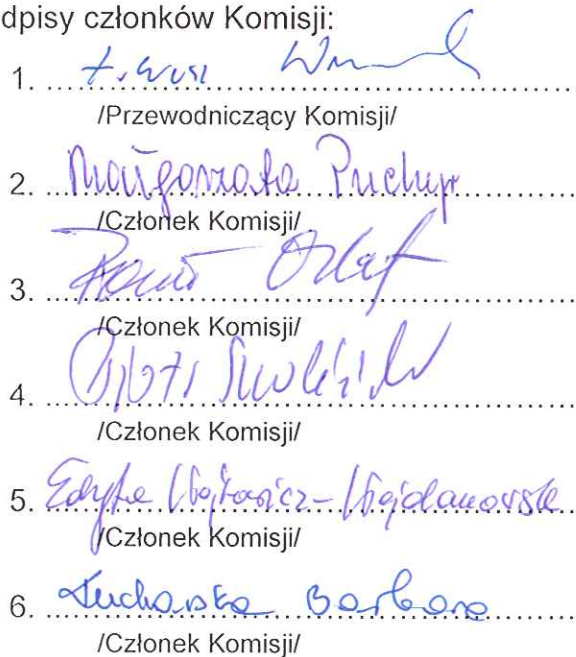 dpisy członków Komisji:
1. ...
/Przewodniczący Komisji/
2. Małgorzata Puchyr
/Członek Komisji/
3. Orlof
/Członek Komisji/
4. Piotr
/Członek Komisji/
5. Edyta Wojtowicz-Wojdanowska
/Członek Komisji/
6. Barbara
/Członek Komisji/